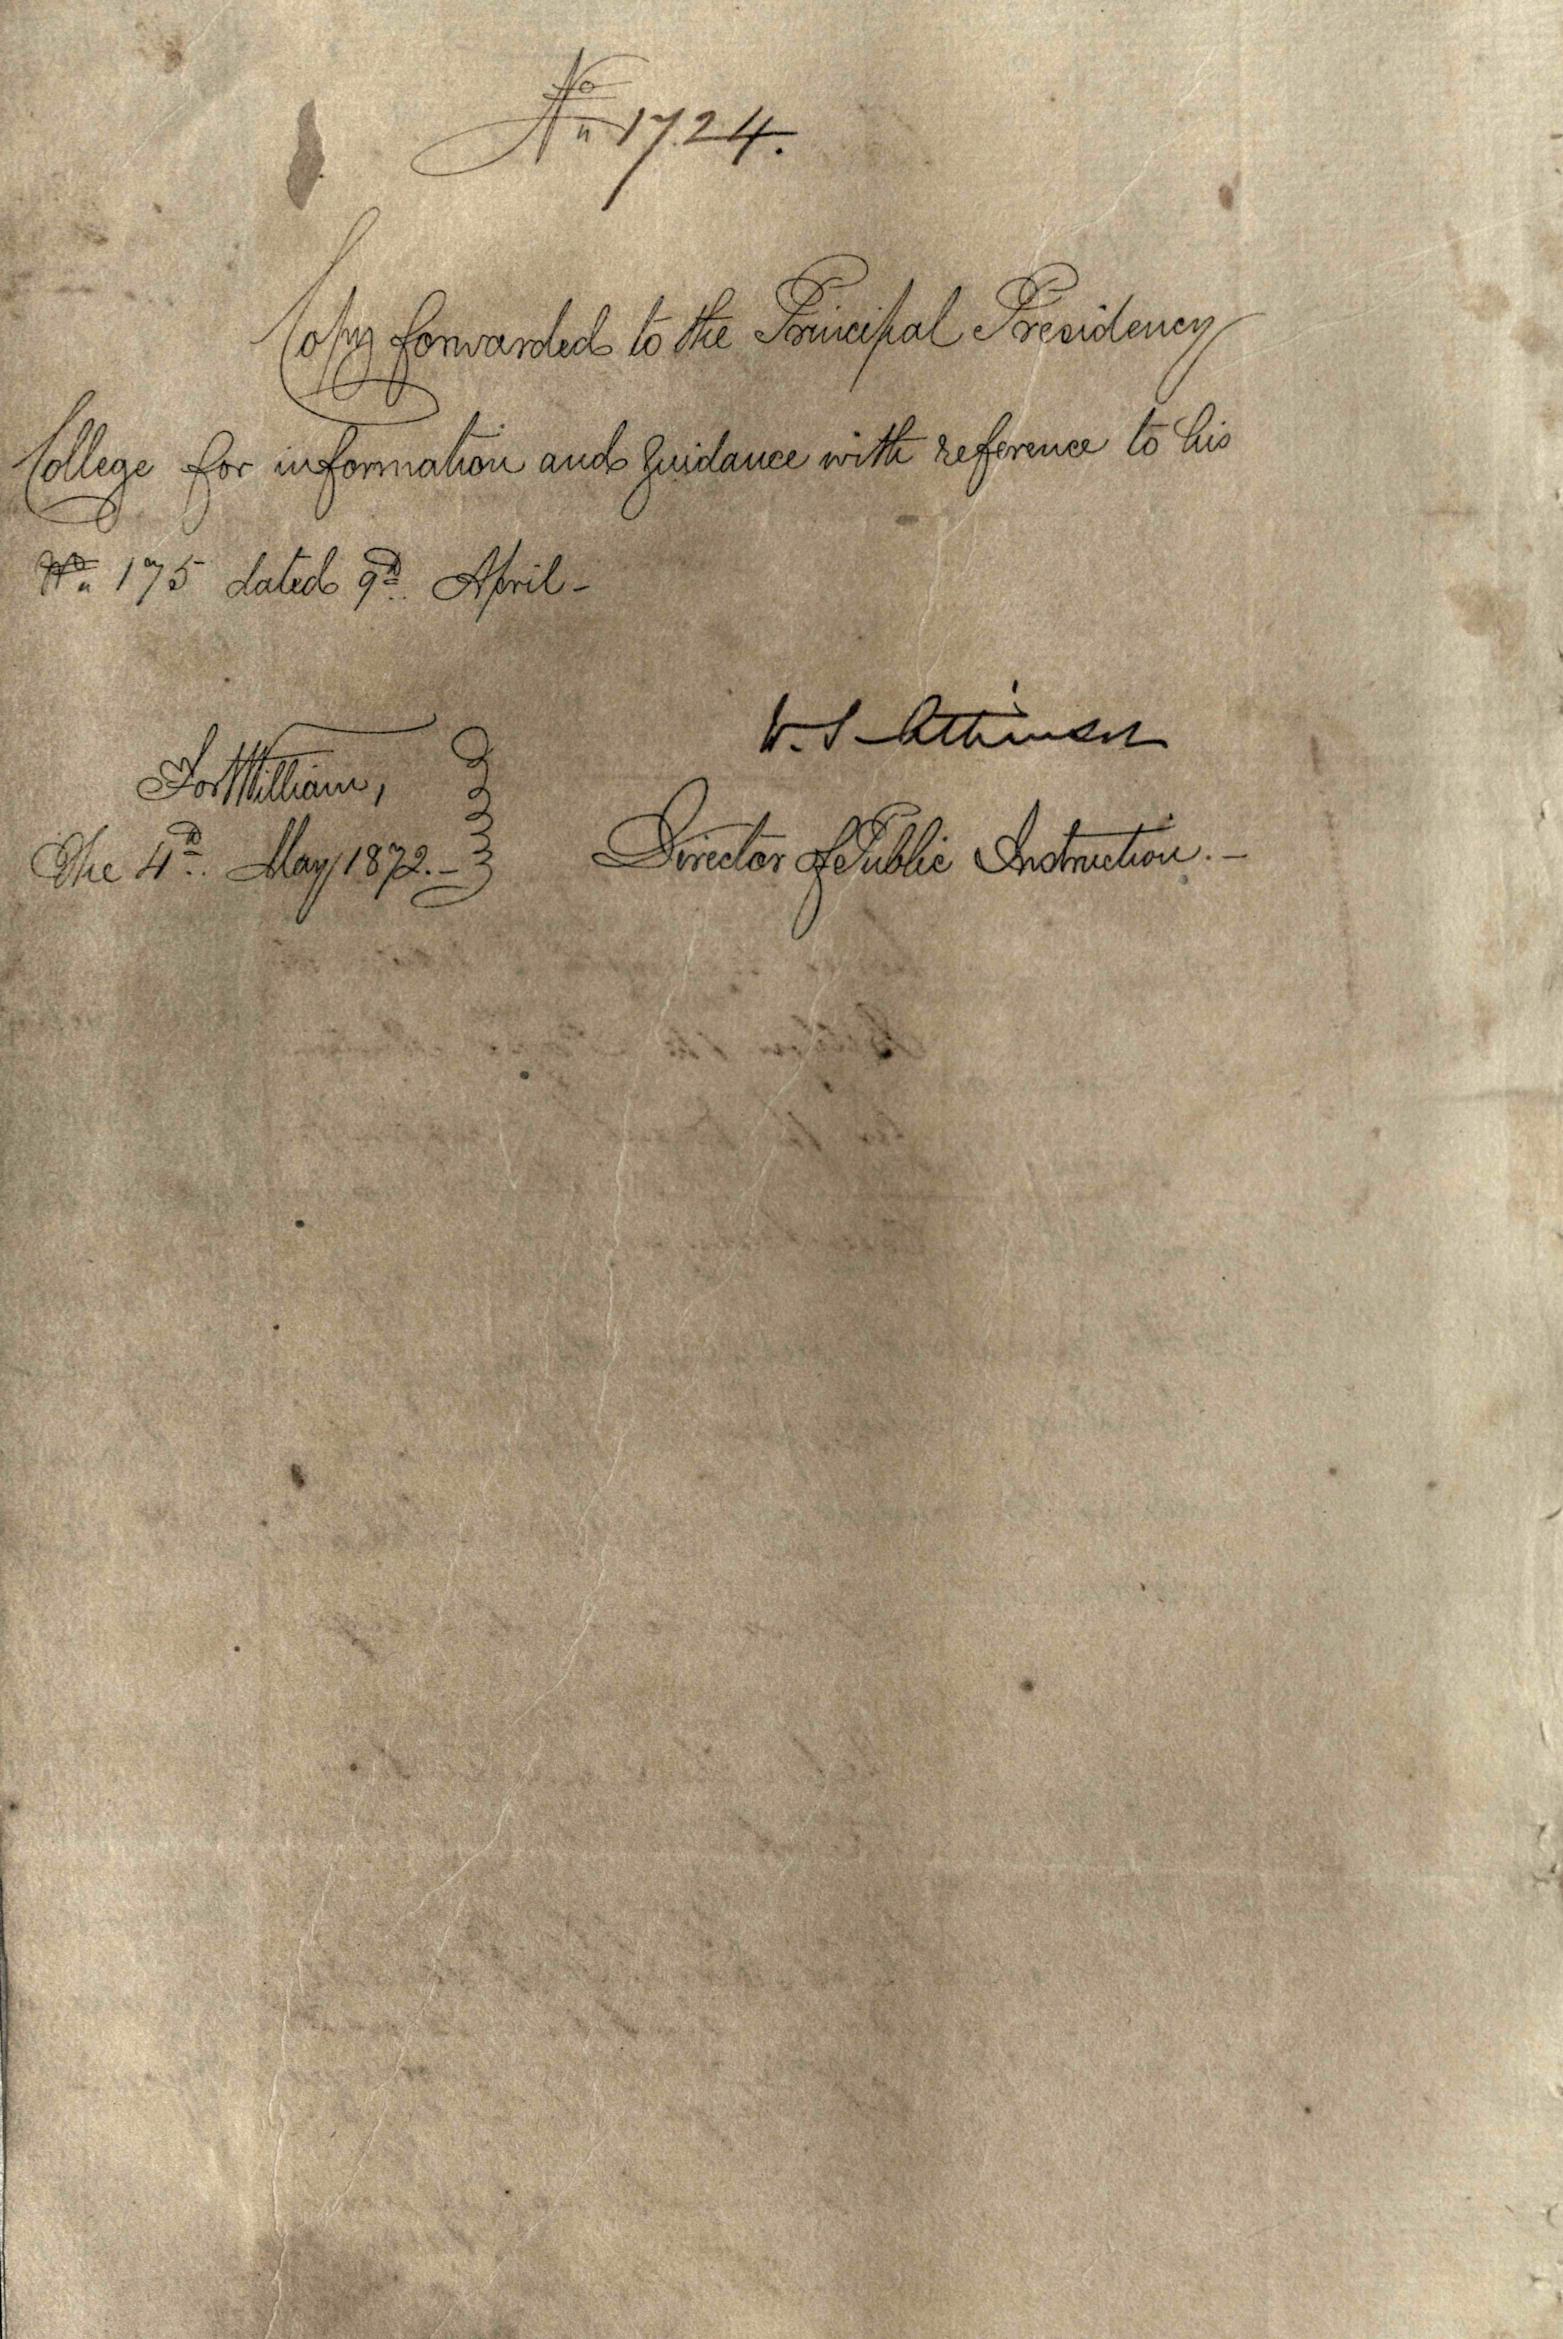 No 1724.
Copy forwarded to the Principal Presidency
College for information and guidance with reference to his
No 175 dated 9th April -
W. S. Atkinson
Fort William,
The 4th May 1872. -
Director of Public Instruction. -